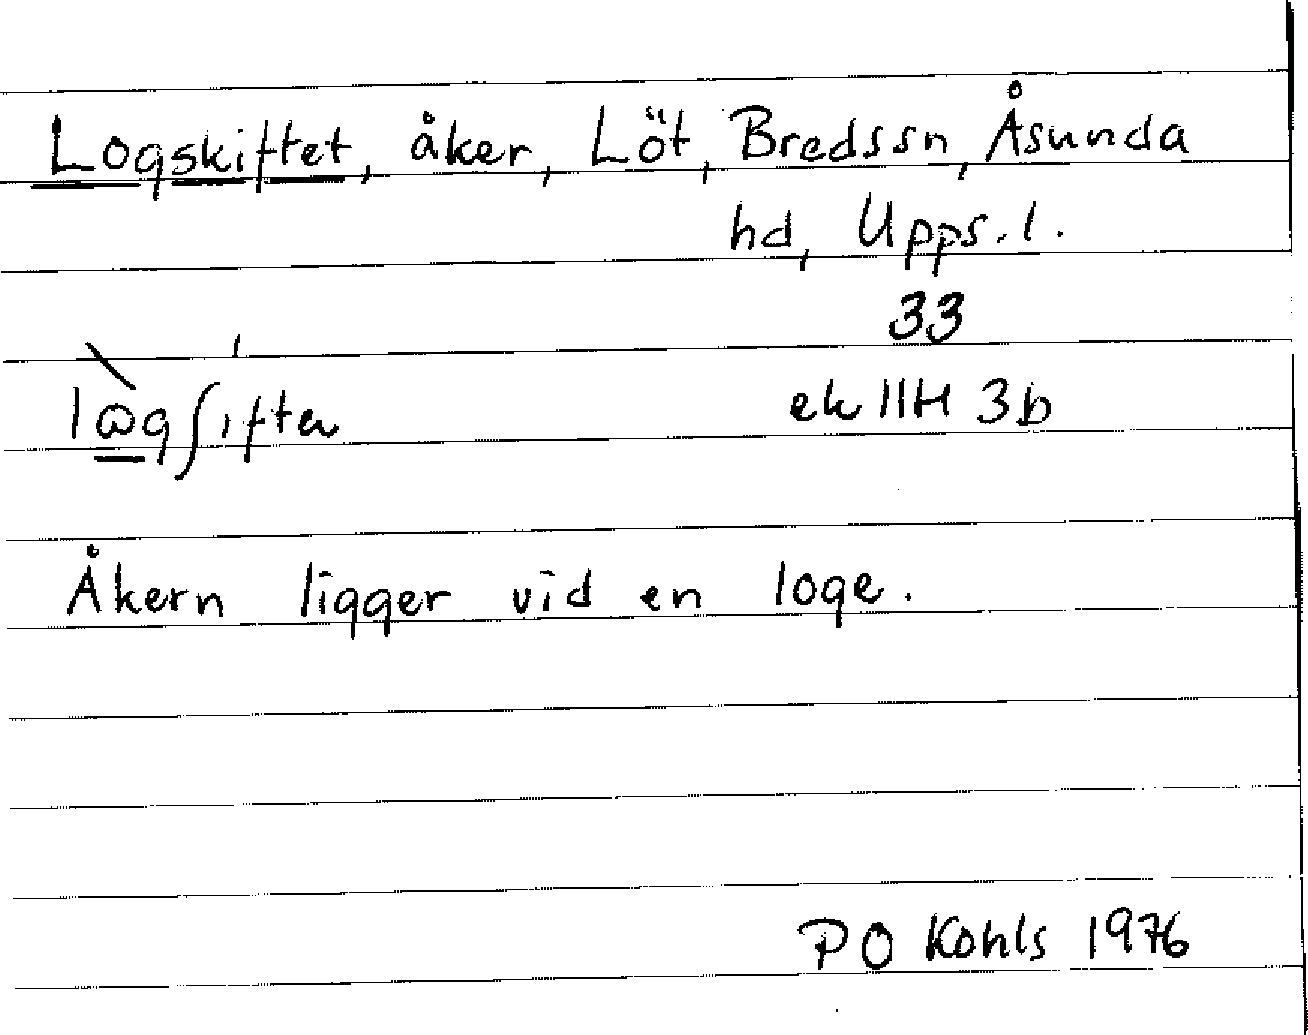 Logskiftet, åker, Löt, Bredssn, Åsunda
hd, Upps. l.
33
ek 11H 3b
Åkern ligger vid en loge.
P O Kohls 1976